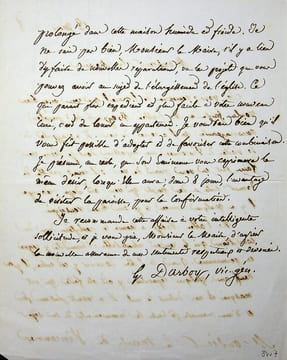 prolongé dans cette maison humide et froide. Je
ne sais pas bien, Monsieur le Maire, s'il y a lieu
d'y faire de nouvelles réparations, vu le projet que vous
pouvez avoir au sujet de l'élargissement de l'église. Ce
qui paraît plus expédient et plus facile à votre
curé, c'est de louer un appartement. Je voudrais bien qu'il
vous fût possible d'adopter et de favoriser cette combinaison.
Je présume, au reste, que Son Éminence vous exprimera le
même désir, lorsqu'elle aura, dans 8 jours, l'avantage
de visiter la paroisse, pour la Confirmation.
Je recommande cette affaire à votre intelligente
sollicitude, et je vous prie, Monsieur le Maire, d'agréer
la nouvelle assurance de mes sentiments respectueux et dévoués.
G. Darboy, vic. gén.